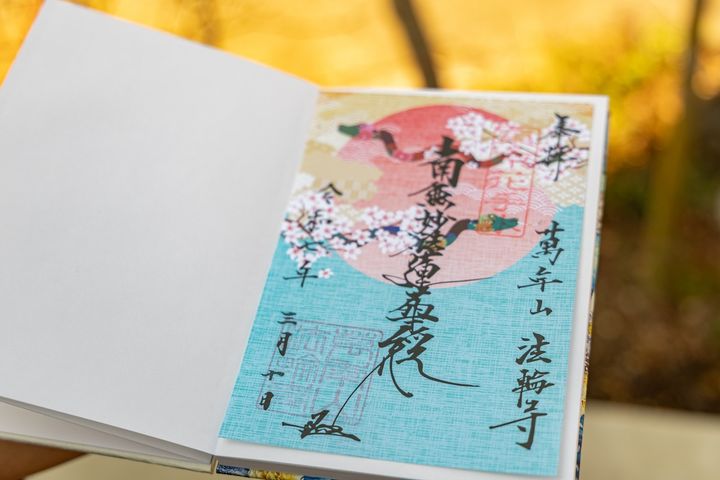 奉拝
萬年山 法輪寺
南無妙法蓮華経
令和七年
三月十日